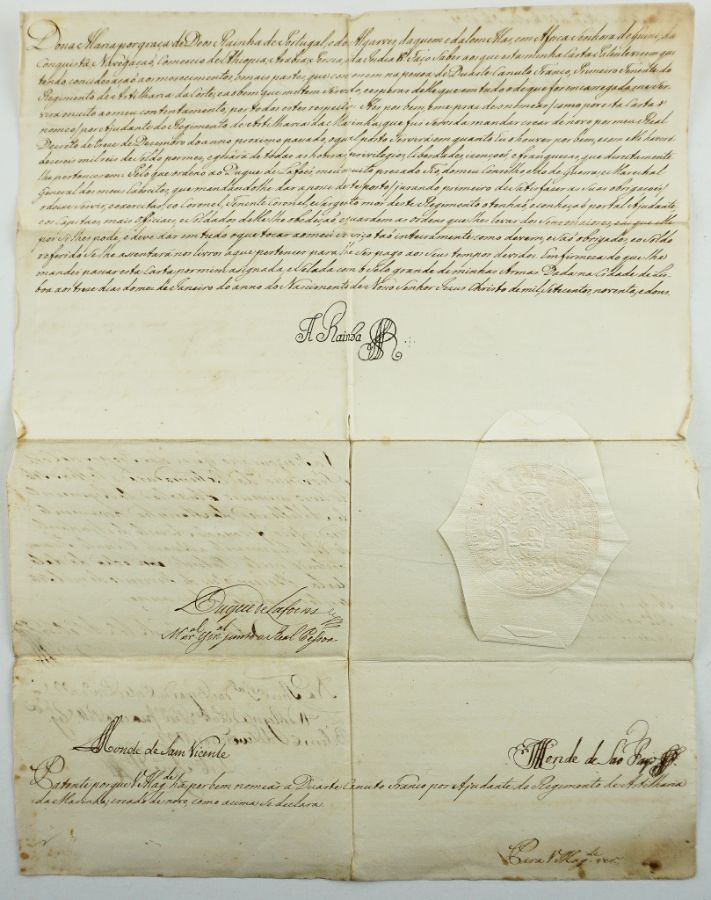 Dona Maria por graça de Deos Rainha de Portugal, e dos Algarves, daquem e dalem Mar, em Africa Senhora de guiné, e da
Conquista, Navegação, Comercio de Ethiopia, Arabia, Persia, e da India &ª. Faço Saber aos que esta minha Carta Patente virem que
tendo concideração aos merecimentos, e mais partes, que concorrem na pesoa de Duarte Canuto Franco, Primeiro Tenente do
Regimento de Artilharia da Corte, e a bem que me tem Servido, e esperar delle que em tudo o de que for encarregado, me ser-
virá muito a meu contentamento, por todos estes respeitos: Hei por bem, e me praz de o nomear, como por esta Carta o
nomeo, por Ajudante do Regimento de Artilharia da Marinha, que fui Servida mandar crear de novo por meu Real
Decreto de treze de Dezembro do anno proximo pasado, o qual posto Servirá em quanto Eu o houver por bem, e com elle haverá
dezeis mil reis de Soldo por mez, e gozará de todas as honras, privilegios, liberdades, izençoes, e franquezas, que directamente
lhe pertencerem. Pelo que ordeno ao Duque de Lafões, meu muito prezado Tio, do meu Conselho e do de Guerra, e Marechal
General dos meus Exercitos, que mandandolhe dar a pose deste posto, jurando primeiro de Satisfazer as Suas obrigaçoes,
o deixe Servir, e exercitar, e o Coronel, Tenente Coronel, e Sargento mór deste Regimento o tenhaõ, e conheçaõ por tal Ajudante,
e os Capitaes, mais officiaes, e Soldados delle lhe obedeçaõ, e guardem as ordens que lhe levar dos Seus mayores, e as que elle
por Si lhes pode, e deve dar em tudo o que tocar ao meu Serviço taõ inteiramente como devem, e saõ obrigados, e o Soldo
referido Se lhe asentará nos livros a que pertencer para lhe Ser pago aos Seus tempos devidos. Em firmeza do que lhe
mandei pasar esta Carta por mim asignada, e Selada com o Selo grande de minhas Armas. Dada na Cidade de Lis-
boa aos treze dias do mez de Janeiro do anno do Nascimento de Noso Senhor Jesus Christo de mil, Setecentos, noventa, e dous.
A Rainha
Duque de Lafoens
Mar.al G.al junto a Real Pesoa
Conde de Sam Vicente
Conde de São
Patente porque V. Mag.de ha por bem nomear a Duarte Canuto Franco por Ajudante do Regimento de Artilharia
da Marinha, creado de novo, como acima Se declara.
Para V. Mag.de ver.